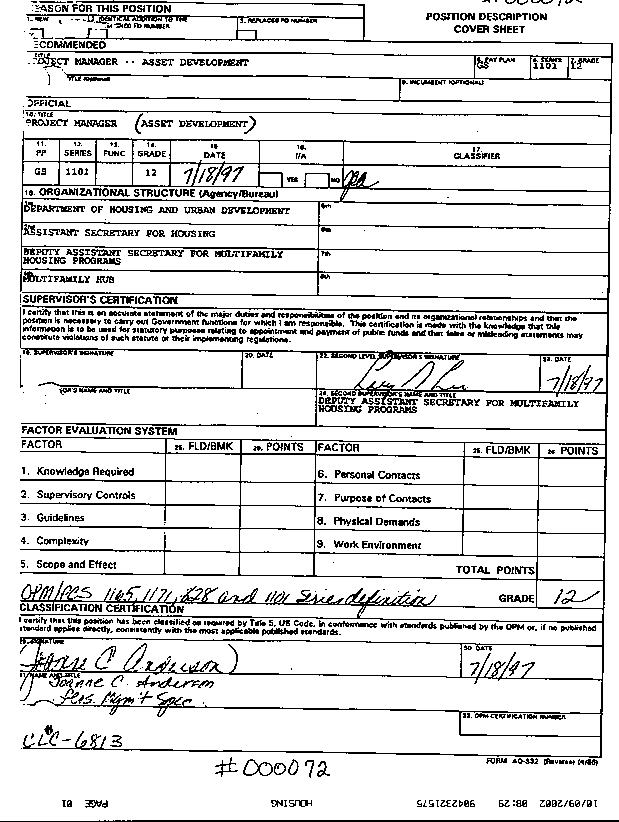 EASON FOR THIS POSITION
1. NEW
2. IDENTICAL ADDITION TO THE
PD NUMBER
3. REPLACES PD NUMBER
POSITION DESCRIPTION
COVER SHEET
ECOMMENDED
TITLE
OJECT MANAGER -- ASSET DEVELOPMENT
5. PAY PLAN
GS
6. SERIES
1101
7. GRADE
12
TITLE (Optional)
9. INCUMBENT (OPTIONAL)
OFFICIAL
10. TITLE
PROJECT MANAGER (ASSET DEVELOPMENT)
11. PP 12. SERIES 13. FUNC 14. GRADE 15. DATE 16. I/A 17. CLASSIFIER
GS 1101 12 7/18/97 YES NO
18. ORGANIZATIONAL STRUCTURE (Agency/Bureau)
DEPARTMENT OF HOUSING AND URBAN DEVELOPMENT
5th
ASSISTANT SECRETARY FOR HOUSING
6th
DEPUTY ASSISTANT SECRETARY FOR MULTIFAMILY
HOUSING PROGRAMS
7th
MULTIFAMILY HUB
8th
SUPERVISOR'S CERTIFICATION
I certify that this is an accurate statement of the major duties and responsibilities of the position and its organizational relationships and that the
position is necessary to carry out Government functions for which I am responsible. This certification is made with the knowledge that this
information is to be used for statutory purposes relating to appointment and payment of public funds and that false or misleading statements may
constitute violations of such statute or their implementing regulations.
19. SUPERVISOR'S SIGNATURE
20. DATE
22. SECOND LEVEL SUPERVISOR'S SIGNATURE
23. DATE
7/18/97
OR'S NAME AND TITLE
24. SECOND SUPERVISOR'S NAME AND TITLE
DEPUTY ASSISTANT SECRETARY FOR MULTIFAMILY
HOUSING PROGRAMS
FACTOR EVALUATION SYSTEM
FACTOR 25. FLD/BMK 26. POINTS FACTOR 25. FLD/BMK 26. POINTS
1. Knowledge Required
6. Personal Contacts
2. Supervisory Controls
7. Purpose of Contacts
3. Guidelines
8. Physical Demands
4. Complexity
9. Work Environment
5. Scope and Effect
TOTAL POINTS
OPM/PCS 1165, 1171, 828 and 1101 Series definition
GRADE 12
CLASSIFICATION CERTIFICATION
I certify that this position has been classified as required by Title 5, US Code, in conformance with standards published by the OPM or, if no published
standard applies directly, consistently with the most applicable published standards.
SIGNATURE
Joanne C Anderson
30. DATE
7/18/97
31. NAME AND TITLE
Joanne C. Anderson
Pers. Mgmt Spec.
32. OPM CERTIFICATION NUMBER
CLC-6813
FORM AD-332 (Reverse) (4/86)
#000072
10/09/2002 08:29 9042321575 HOUSING PAGE 01